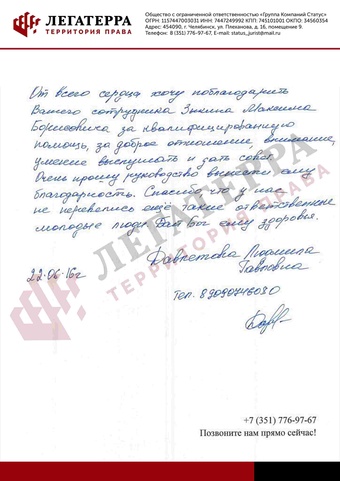 ЛЕГАТЕРРА
ТЕРРИТОРИЯ ПРАВА
Общество с ограниченной ответственностью «Группа Компаний Статус»
ОГРН: 1157447003031 ИНН: 7447249992 КПП: 745101001 ОКПО: 34560354
Адрес: 454090, г. Челябинск, ул. Плеханова, д. 16, помещение 9.
Телефон: 8 (351) 776-97-67, E-mail: status_jurist@mail.ru
От всего сердца хочу поблагодарить
Вашего сотрудника Максима
Борисовича за квалифицированную
помощь, за доброе отношение, внимание,
умение выслушать и дать совет.
Очень прошу руководство вынести ему
благодарность. Спасибо, что у нас
не перевелись ещё такие ответственные
молодые люди. Дай Бог ему здоровья.
ЛЕГАТЕРРА
ТЕРРИТОРИЯ ПРАВА
Давлетова Людмила
Павловна
22.06.16г
Тел. 89090746030
+7 (351) 776-97-67
Позвоните нам прямо сейчас!